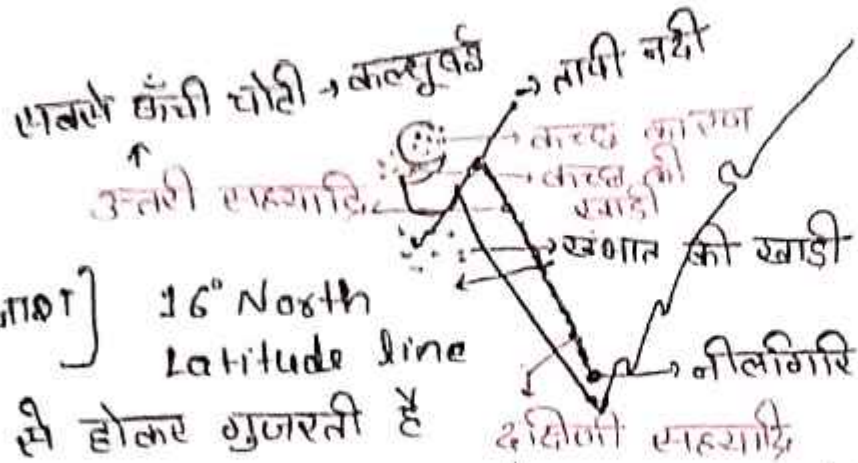 सबसे ऊँची चोटी → कल्सुबई
→ तापी नदी
→ कच्छ का रण
→ कच्छ की
खाडी
उत्तरी सह्याद्रि
→ खंभात की खाडी
16° North
Latitude line
से होकर गुजरती है
→ नीलगिरि
दक्षिणी सह्याद्रि